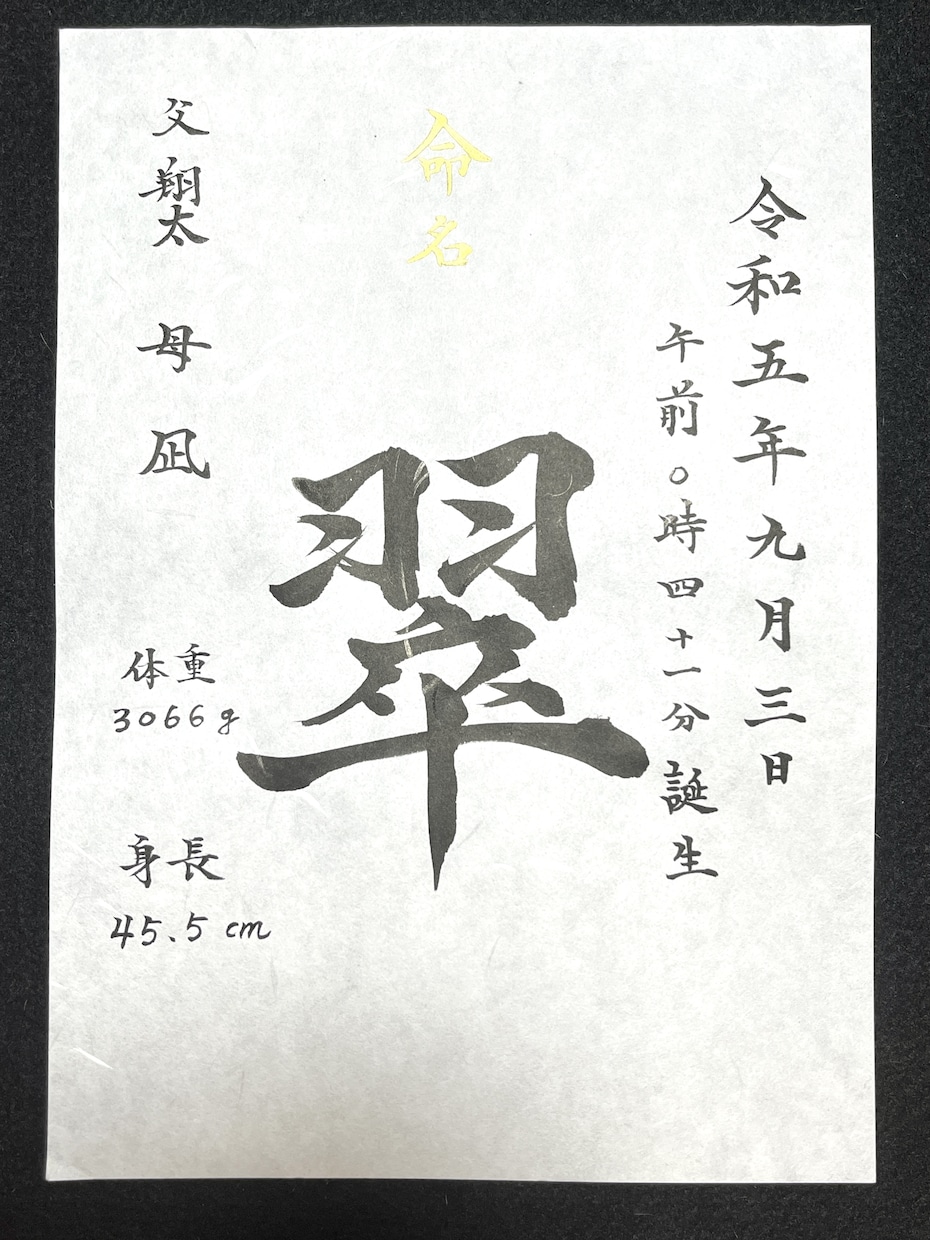 令和五年九月三日
午前〇時四十一分誕生
命名
翠
父 翔太 母 凪
体重
3066g
身長
45.5cm